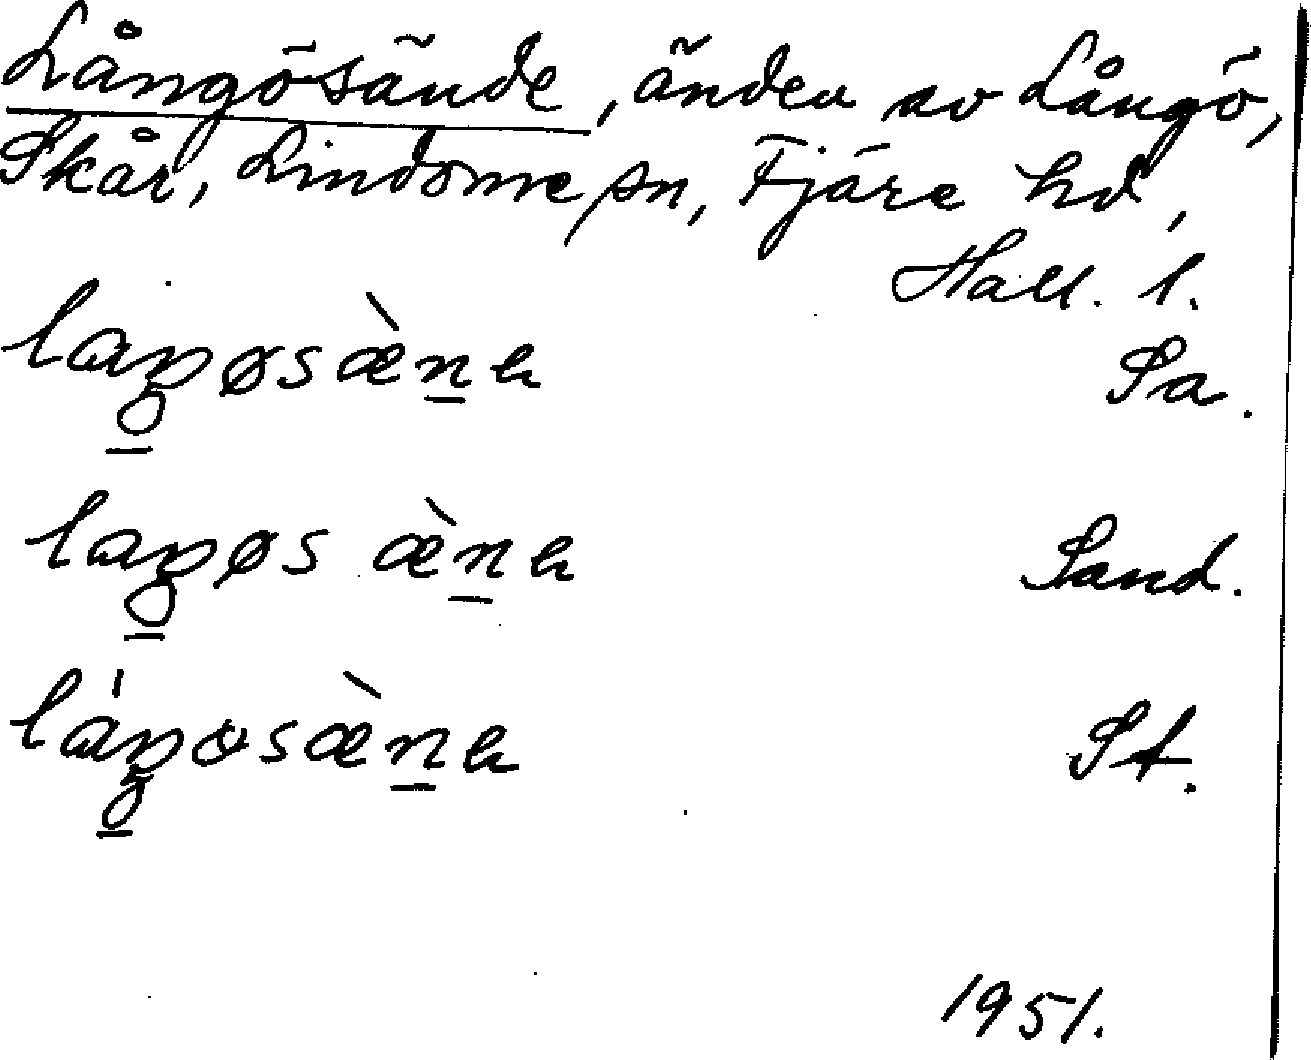 Långösände, änden av Långö,
Skår, Lindome sn, Fjäre hd,
Hall. l.
laŋøsæ̀nə Sa.
laŋøs æ̀nə Sand.
láŋosæ̀nə St.
1951.